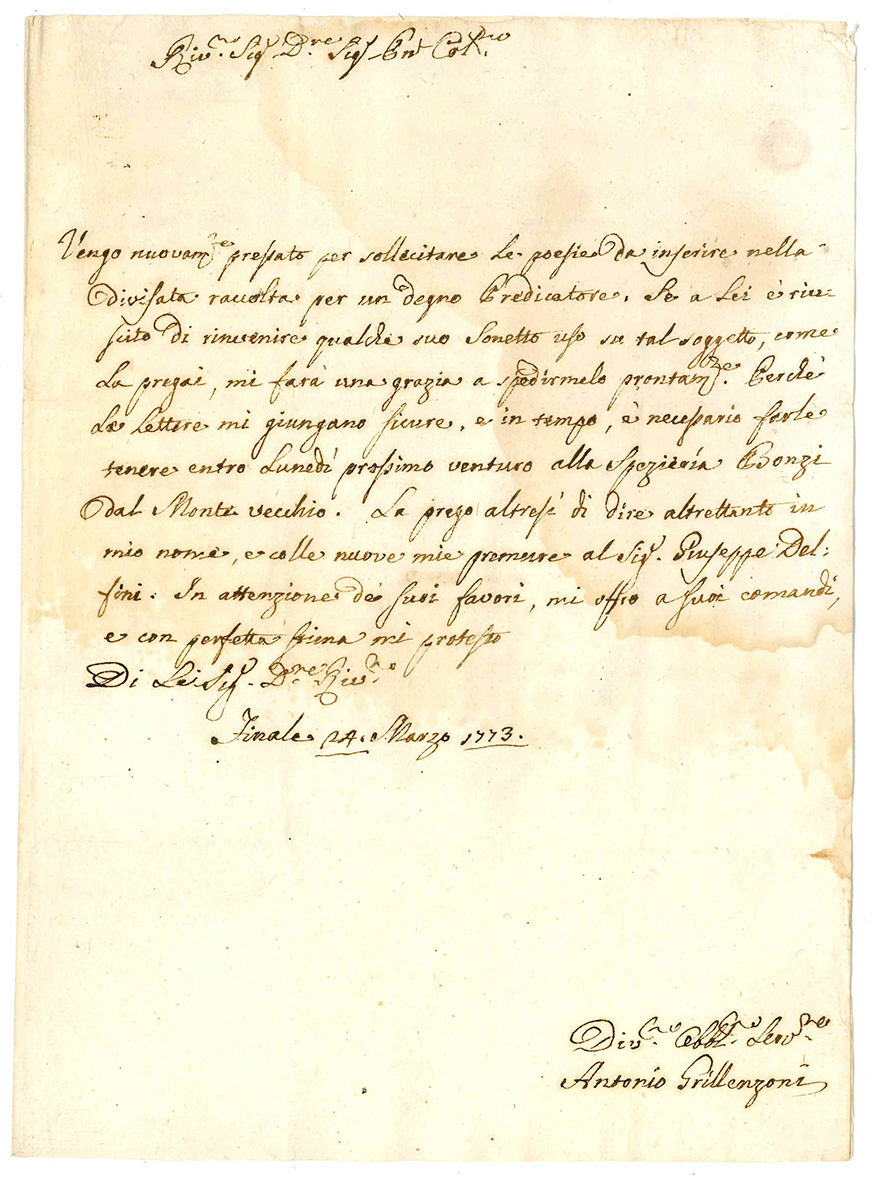 Riv.mo Sig.r D.re Sig.r Pne Col.mo
Vengo nuovam.te pressato per sollecitare le poesie da inserire nella
divisata raccolta per un degno Predicatore. Se a Lei è riu-
scito di rinvenire qualche suo Sonetto uso su tal soggetto, come
La pregai, mi farà una grazia a spedirmelo prontam.te. Perchè
Le Lettere mi giungano sicure, e in tempo, è necessario farle
tenere entro Lunedì prossimo venturo alla Spezieria Bonzi
dal Monte vecchio. La prego altresì di dire altrettanto in
mio nome, e colle nuove mie premure al Sig.r Giuseppe Del:
fini. In attenzione de' suoi favori, mi offro a suoi comandi,
e con perfetta stima mi protesto
Di Lei Sig.r D.re Riv.mo
Finale 24. Marzo 1773.
Div.mo Obbl.mo Serv.re
Antonio Grillenzoni